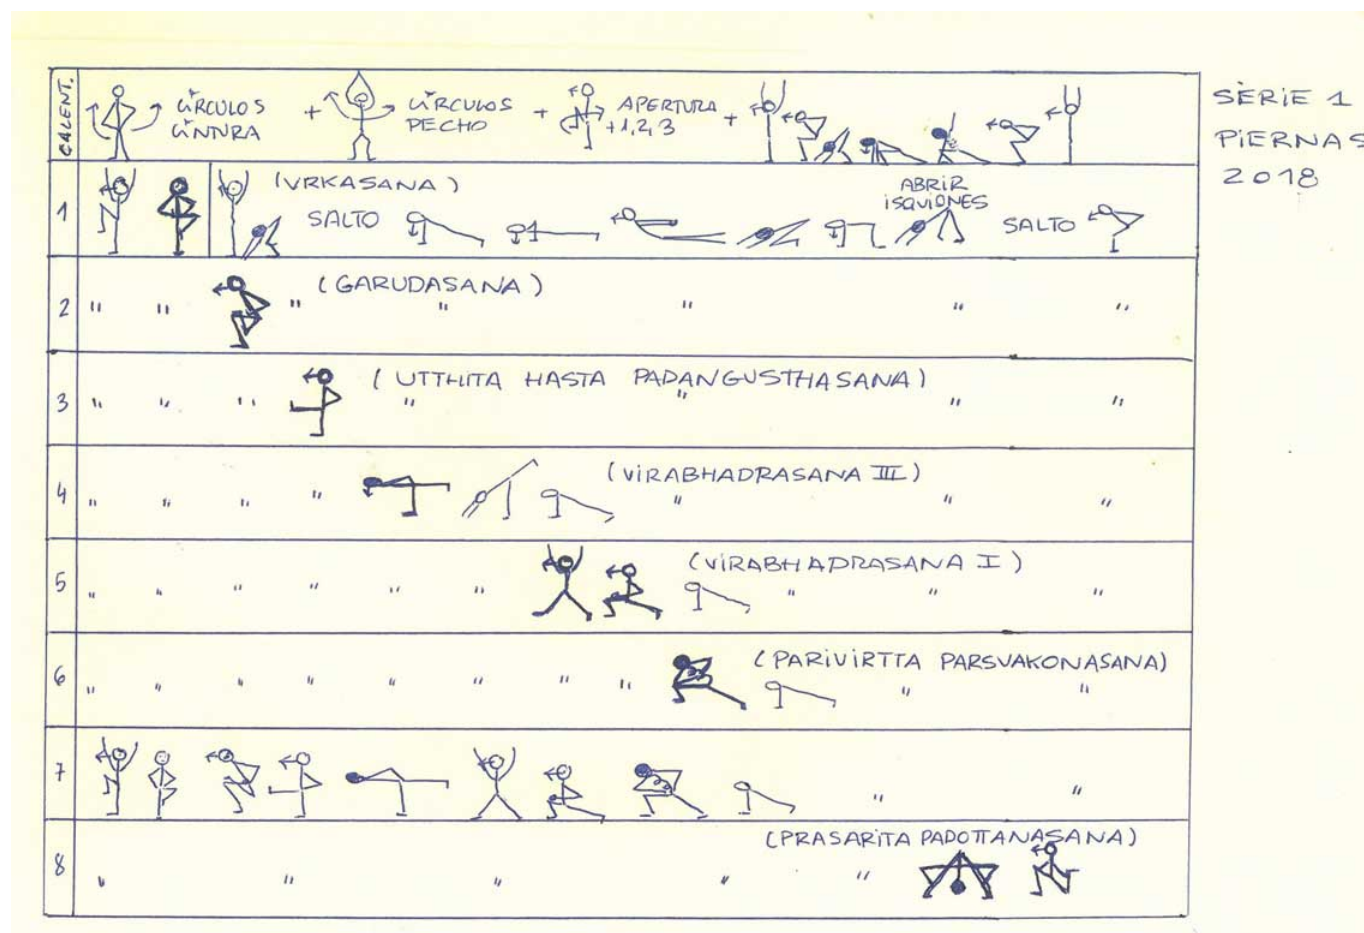 SERIE 1
PIERNAS
2018
CALENT.
CÍRCULOS
CINTURA
+
CÍRCULOS
PECHO
+
APERTURA
+1,2,3
+
1
(VRKASANA)
SALTO
ABRIR
ISQUIONES
SALTO
2
" "
(GARUDASANA)
" " " " "
3
" " "
(UTTHITA HASTA PADANGUSTHASANA)
" " " "
4
" " " "
(VIRABHADRASANA III)
" " "
5
" " " " " "
(VIRABHADRASANA I)
" " "
6
" " " " " " " "
(PARIVIRTTA PARSVAKONASANA)
" "
7
" "
8
(PRASARITA PADOTTANASANA)
" " " " "